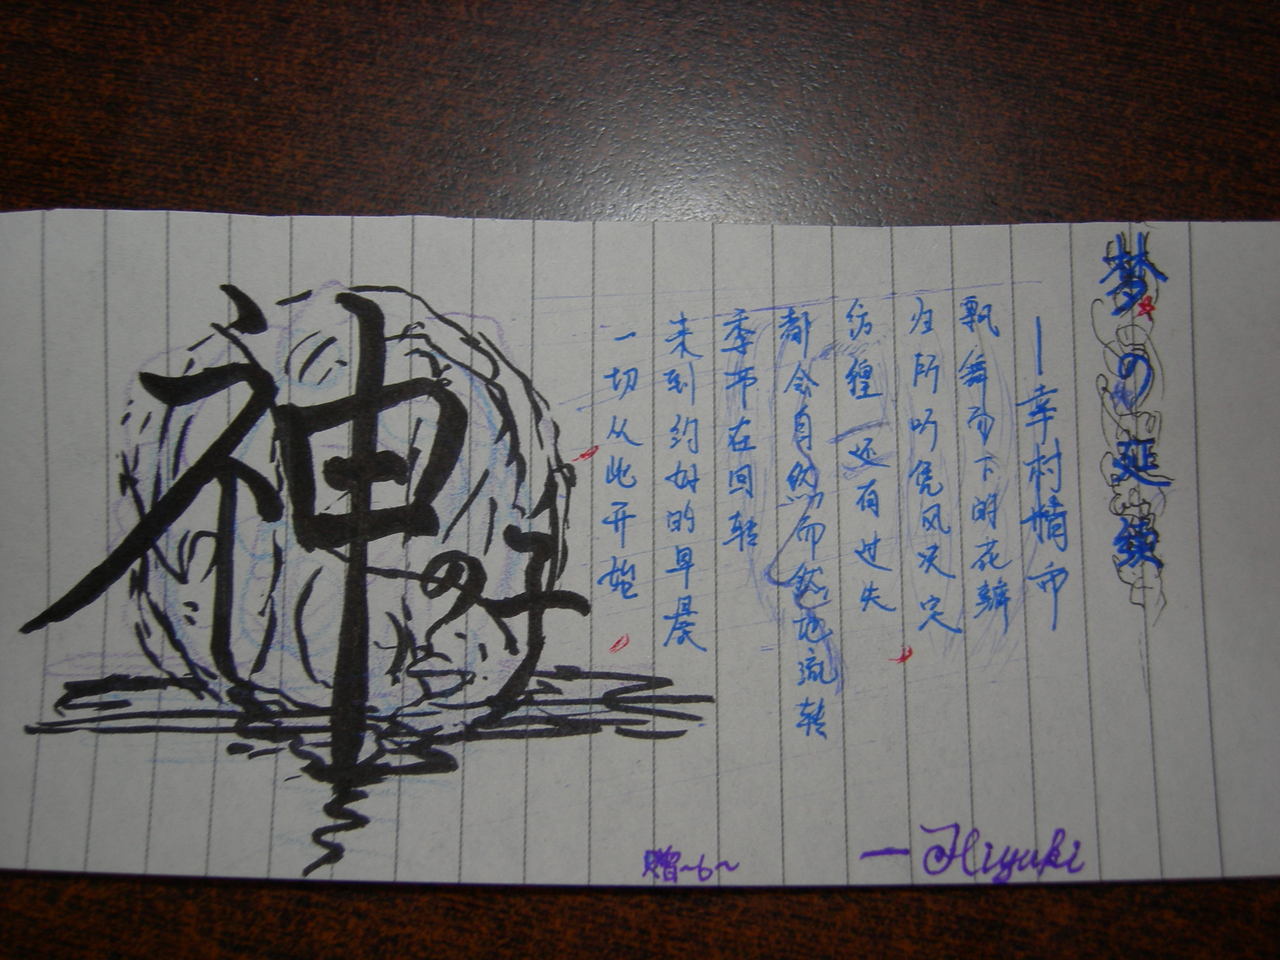 梦の延续
—幸村精市
飘舞而下的花瓣
归所听凭风决定
彷徨还有过失
都会自然而然地流转
季节在回转
来到约好的早晨
一切从此开始
神の子
赠~6~
—Hiyuki